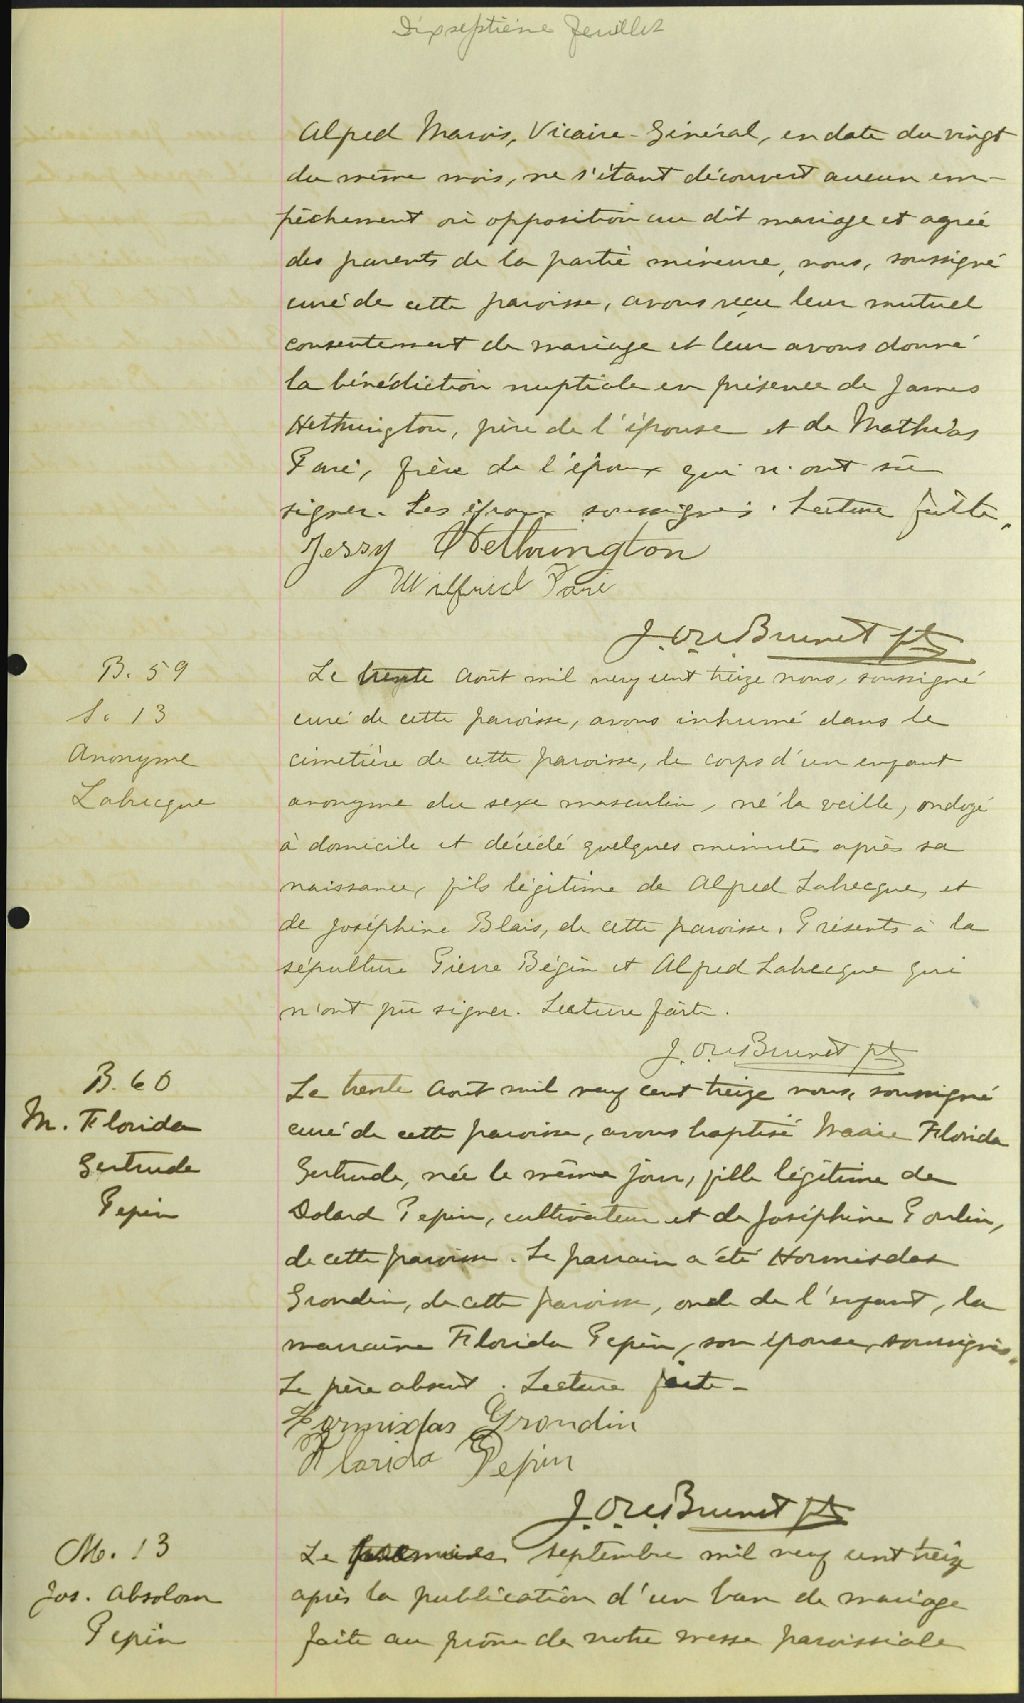 Dixseptième feuillet
Alfred Marois, Vicaire-Général, en date du vingt
du même mois, ne s'étant découvert aucun em-
pêchement où opposition au dit mariage et agréé
des parents de la partie mineure, nous, soussigné
curé de cette paroisse, avons reçu leur mutuel
consentement de mariage et leur avons donné
la bénédiction nuptiale en présence de James
Hethrington, père de l'épouse et de Mathias
Paré, frère de l'époux qui n'ont sû
signer. Les époux soussignés. Lecture faite.
Jessy Hethrington
Wilfrid Paré
J. Brunet ptr
B. 59
S. 13
Anonyme
Labrecque
Le trente août mil neuf cent treize nous, soussigné
curé de cette paroisse, avons inhumé dans le
cimetière de cette paroisse, le corps d'un enfant
anonyme du sexe masculin, né la veille, ondoyé
à domicile et décédé quelques minutes après sa
naissance, fils légitime de Alfred Labrecque, et
de Joséphine Blais, de cette paroisse. Présents à la
sépulture Pierre Bégin et Alfred Labrecque qui
n'ont pû signer. Lecture faite.
J. Brunet ptr
B. 60
M. Florida
Gertrude
Pepin
Le trente août mil neuf cent treize nous, soussigné
curé de cette paroisse, avons baptisé Marie Florida
Gertrude, née le même jour, fille légitime de
Dolard Pepin, cultivateur et de Joséphine Poulin,
de cette paroisse. Le parrain a été Hormisdas
Grondin, de cette paroisse, oncle de l'enfant, la
marraine Florida Pepin, son épouse, soussignés.
Le père absent. Lecture faite-
Hormisdas Grondin
Florida Pepin
J. Brunet ptr
M. 13
Jos. Absolom
Pepin
Le septembre mil neuf cent treize
après la publication d'un ban de mariage
faite au prône de notre messe paroissiale